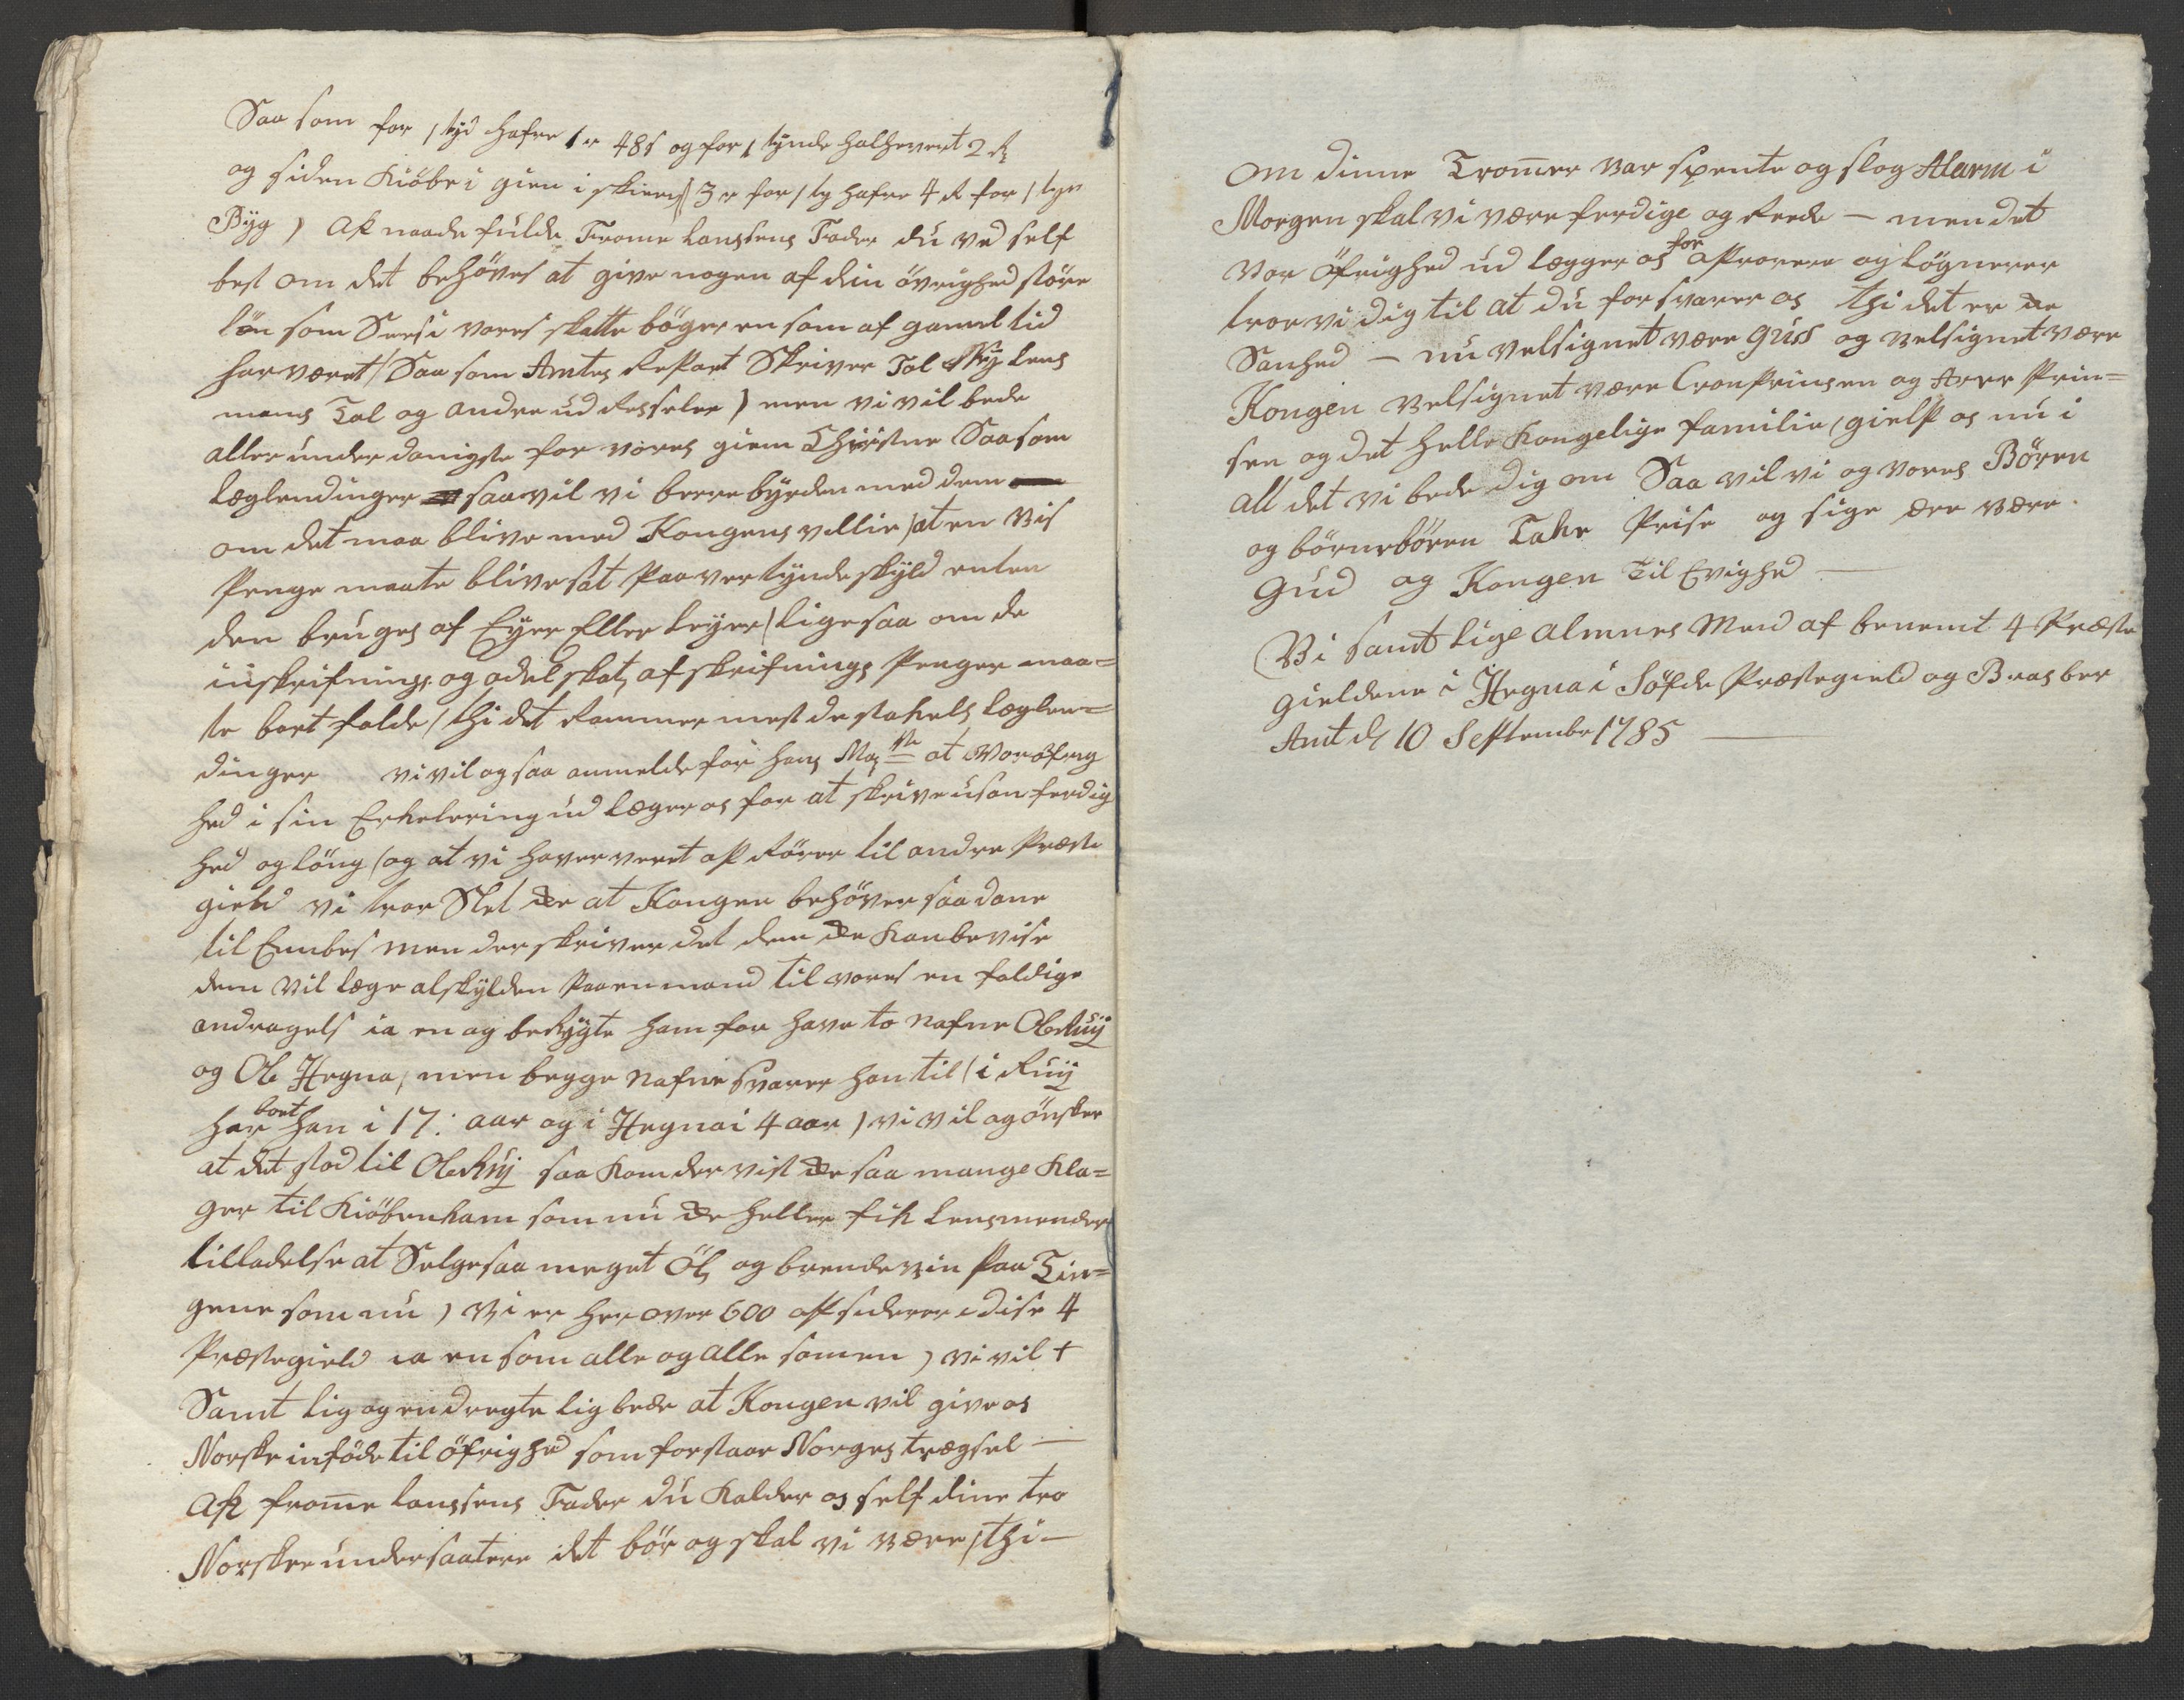 Saa som for 1 tyd hafre 1 r 48 s og for 1 tynde halhevert 2 R
og siden Kiöbe i gien i skiers 3 r for 1 ty hafre 4 R for 1 tyn
Byg ) Ak naade fulde Frome lanssens Fader du ved self
best om det behöves at give nogen af din övrighed större
lön som Sees i vores skatte böger en som af gamel tid
har været / Saa som Amtes Repart Skriver Tol Skÿ lens
mans Tol og andre ud Resseler ) men vi vil bede
aller under danigste for vores giem Christne Saa som
læglendinger saa vil vi berre byrden med dem
om det maa blive med Kongens villie / at en vis
Penge maate blive sat Paa ver tynde skyld enten
den bruges af Eyer Eller leyer / lige saa om de
inskrifnings og odel skat, afskrifnings Penger maa=
te bort falde / thi det Rammer mest de stakels læglen=
dinger vi vil og saa anmelde for hans May ste at Vor öfrig
hed i sin Erkelering ud læger os for at skrive usanferdig
hed og löng / og at vi haver veret op Rörer til andre Preste
gield vi tror Slet de at Kongen behöver saadane
til Embes men der skriver det dem de Kan bevise
dem vil læge al skylden Paa en mand til vores en foldige
andragels ia en og beskygte ham for have to nafne Ole Ruÿ
og Ole Hegna, men begge nafne svarer han til / i Ruÿ
har boet han i 17. aar og i Hegna i 4 aar ) vi vil og önsker
at det stod til Ole Ruÿ saa Kom der vist de saa mange Kla=
ger til Kiöbenham som nu de heller fik lensmender
tilladelse at Selge saa meget Öl, og brendevin Paa Tin=
gene som nu ) vi er her over 600 op siderer i dise 4
Præstegield ia en som alle og alle som en ) vi vil +
Samt lig og endregte lig bede at Kongen vil give os
Norske inföde til öfrighed som forstaar Norges trægsel —
Ak frome lanssens Fader du Kalder os self dine tro
Norske undersaatere det bör og skal vi være / thi —
om dinne Tromer var spente og slog Alarm i
Morgen skal vi være ferdige og Rede — men det
vor öfrighed ud legger os for oprorere og lögnerer
tror vi dig til at du forsvarer os thi det er de
Sanhed — nu velsignet være Gud og velsignet være
Kongen velsignet være CronPrinsen og Arve Prin=
sen og det helle Kongelige familie / gielp os nu i
all det vi bede dig om Saa vil vi og vores Bören
og börnebören Takr Prise og sige ære være
Gud og Kongen Til Evighed —
Vi samt lige Almues Mend af benemt 4 Præste
gieldene i Hegna i Söfde Præstegield og Brasber
Amt d 10 Septembr 1785 —